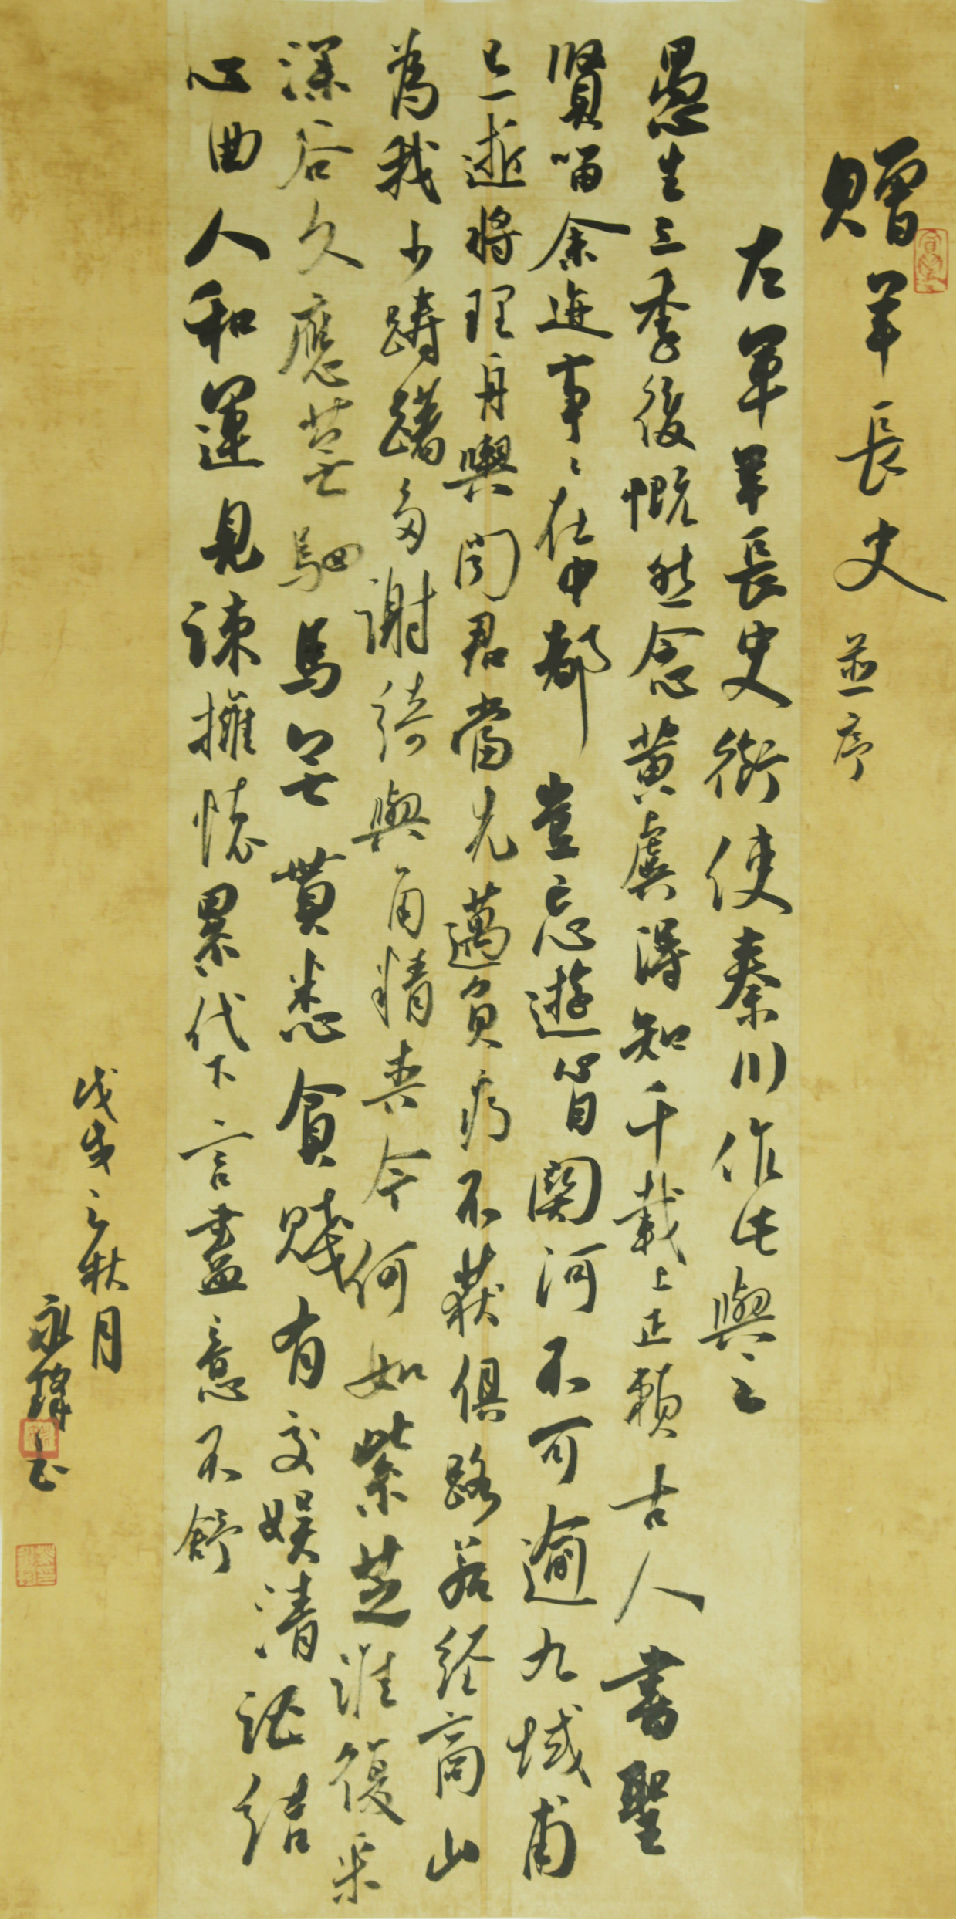 贈羊長史並序
左軍羊長史銜使秦川作此與之
愚生三季後慨然念黃虞得知千載上正賴古人書聖
賢留余迹事〻在中都豈忘遊心目關河不可逾九域甫
已一逝將理舟輿聞君當先邁負疴不獲俱路若經商山
為我少躊躇多謝綺與角精爽今何如紫芝誰復采
深谷久應蕪駟馬無貰患貧賤有交娛清謠結
心曲人和運見疎擁懷累代下言盡意不舒
戊戌之秋月
永